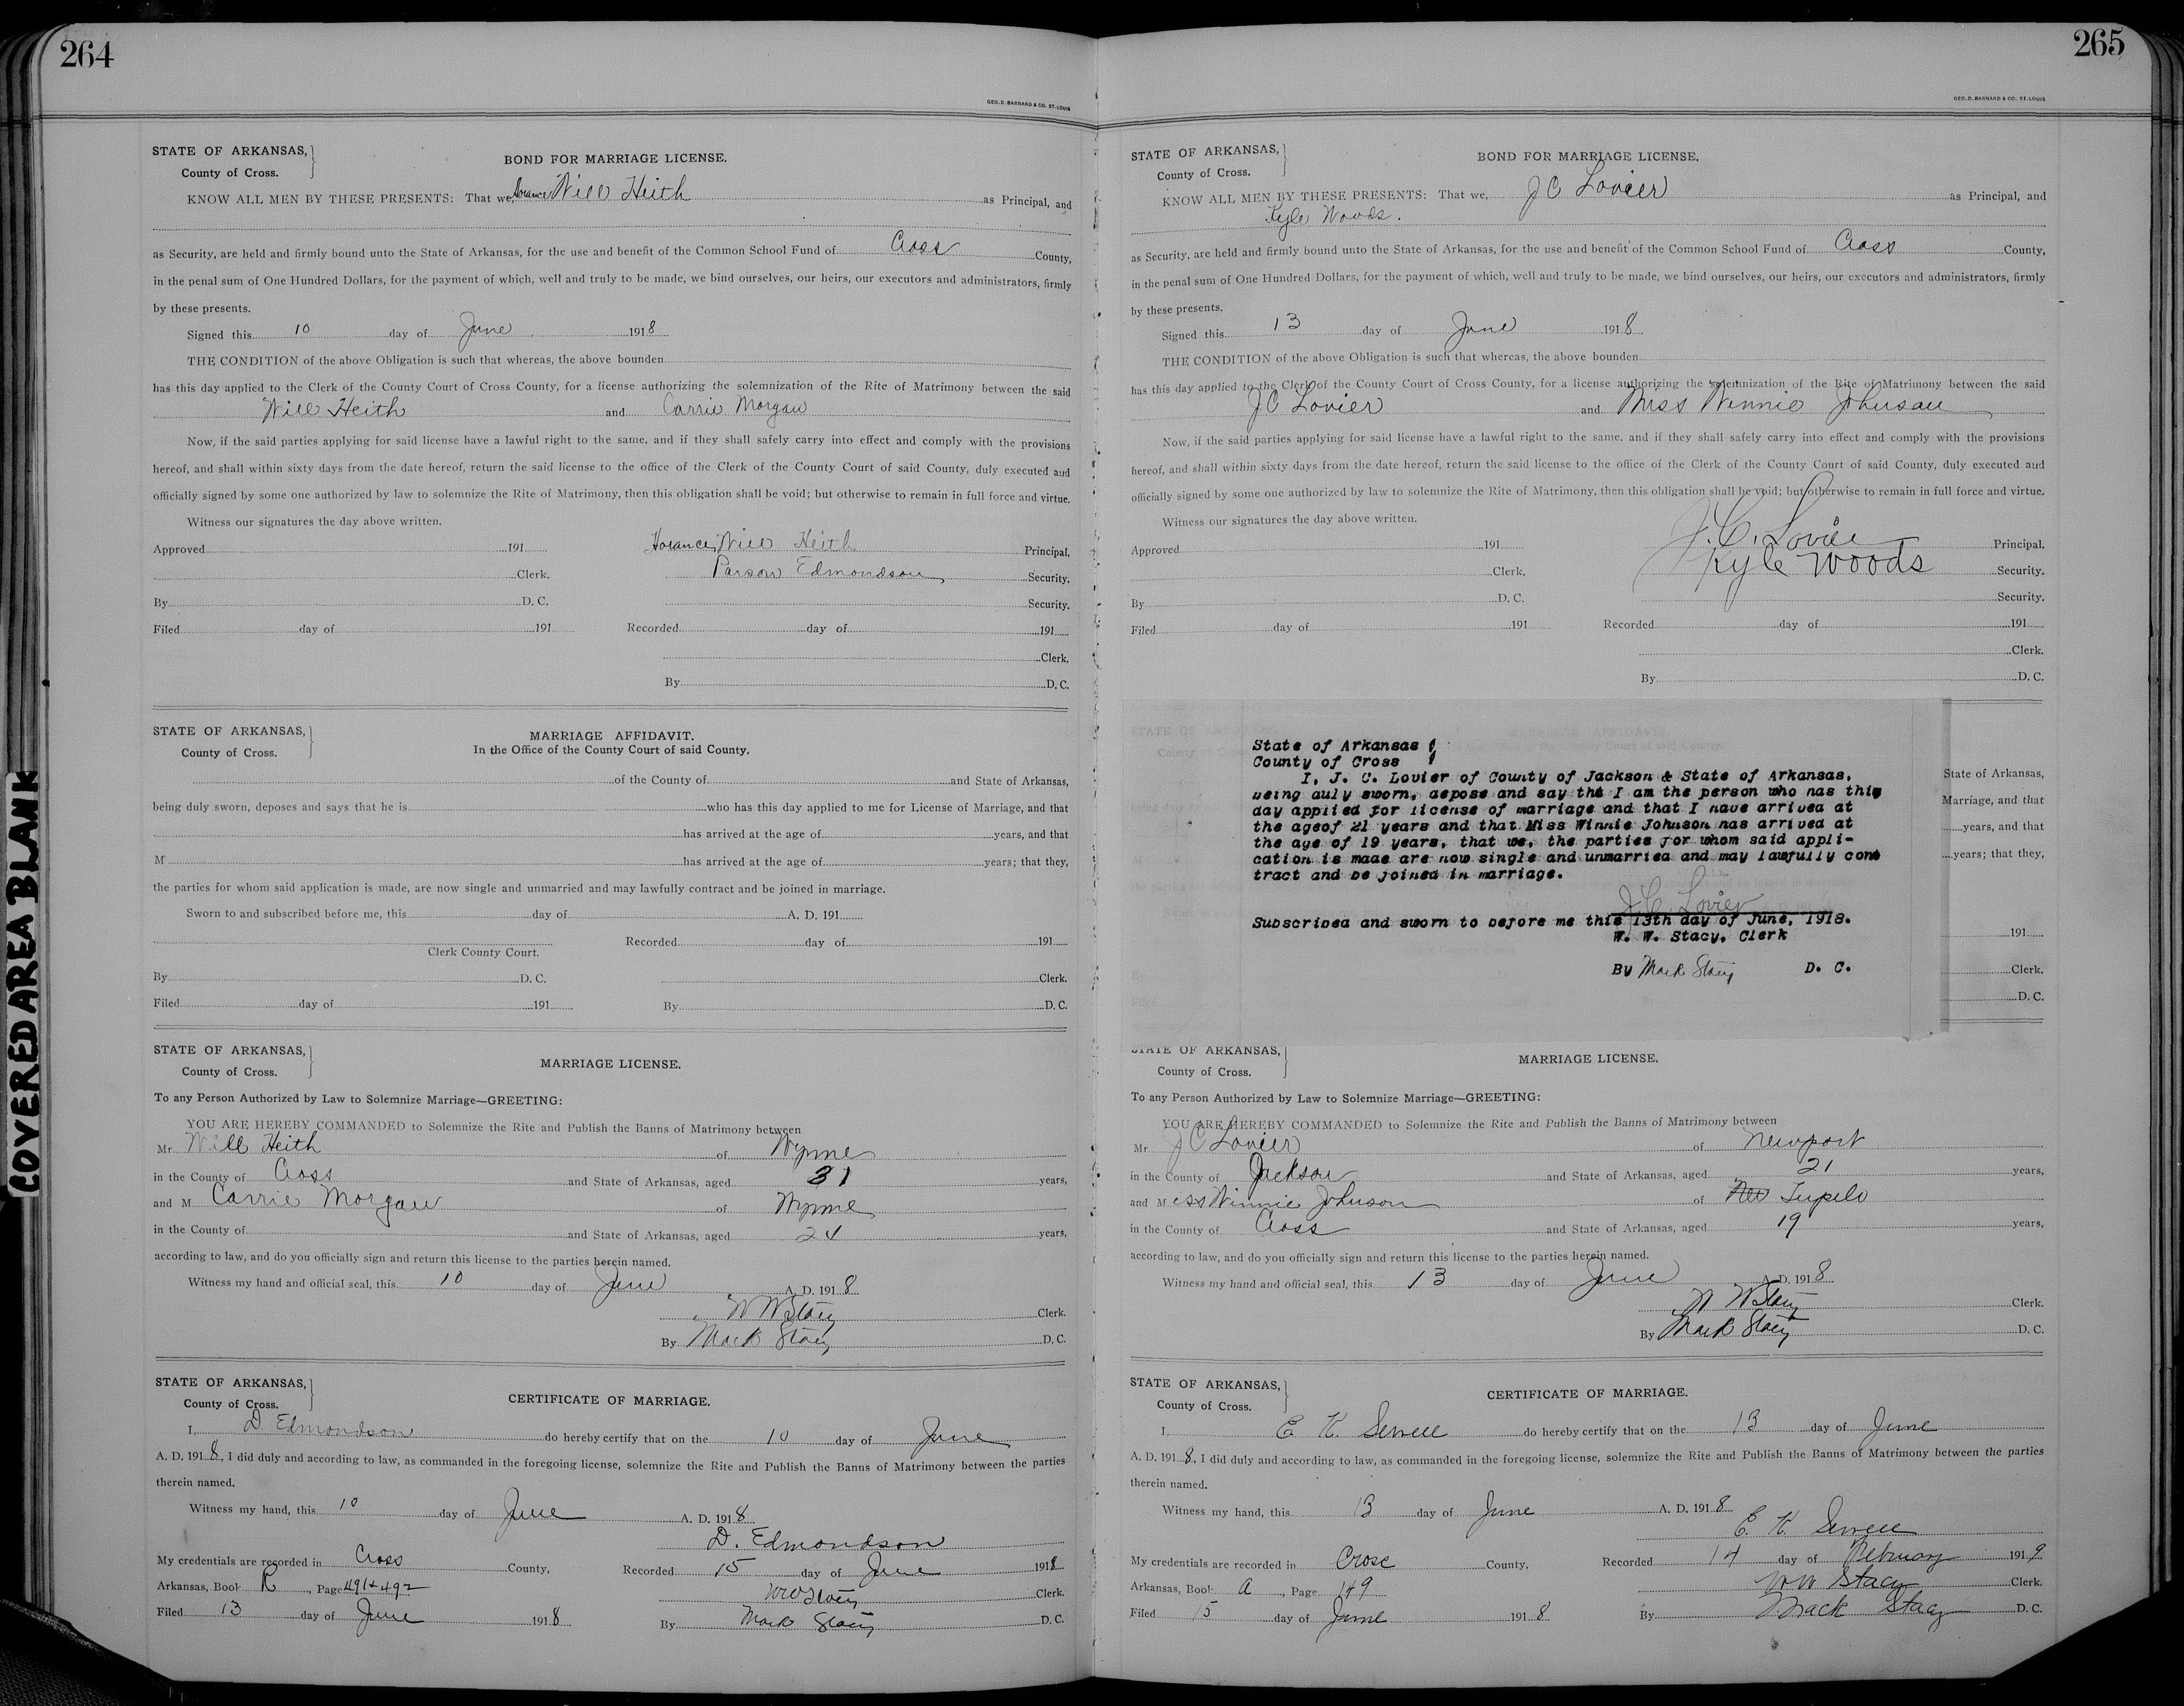 264
GEO. D. BARNARD & CO. ST. LOUIS
STATE OF ARKANSAS,
County of Cross.
BOND FOR MARRIAGE LICENSE.
KNOW ALL MEN BY THESE PRESENTS: That we, Will Heith as Principal, and
as Security, are held and firmly bound unto the State of Arkansas, for the use and benefit of the Common School Fund of Cross County,
in the penal sum of One Hundred Dollars, for the payment of which, well and truly to be made, we bind ourselves, our heirs, our executors and administrators, firmly
by these presents.
Signed this 10 day of June 1918
THE CONDITION of the above Obligation is such that whereas, the above bounden
has this day applied to the Clerk of the County Court of Cross County, for a license authorizing the solemnization of the Rite of Matrimony between the said
Will Heith and Carrie Morgan
Now, if the said parties applying for said license have a lawful right to the same, and if they shall safely carry into effect and comply with the provisions
hereof, and shall within sixty days from the date hereof, return the said license to the office of the Clerk of the County Court of said County, duly executed and
officially signed by some one authorized by law to solemnize the Rite of Matrimony, then this obligation shall be void; but otherwise to remain in full force and virtue.
Witness our signatures the day above written.
Approved 191 Will Heith Principal.
Clerk. Parson Edmondson Security.
By D. C. Security.
Filed day of 191 Recorded day of 191
Clerk.
By D. C.
STATE OF ARKANSAS,
County of Cross.
MARRIAGE AFFIDAVIT.
In the Office of the County Court of said County.
of the County of and State of Arkansas,
being duly sworn, deposes and says that he is who has this day applied to me for License of Marriage, and that
has arrived at the age of years, and that
M has arrived at the age of years; that they,
the parties for whom said application is made, are now single and unmarried and may lawfully contract and be joined in marriage.
Sworn to and subscribed before me, this day of A. D. 191
Clerk County Court. Recorded day of 191
By D. C. Clerk.
Filed day of 191 By D. C.
COVERED AREA BLANK
STATE OF ARKANSAS,
County of Cross.
MARRIAGE LICENSE.
To any Person Authorized by Law to Solemnize Marriage—GREETING:
YOU ARE HEREBY COMMANDED to Solemnize the Rite and Publish the Banns of Matrimony between
Mr. Will Heith of Wynne
in the County of Cross and State of Arkansas, aged 31 years,
and M Carrie Morgan of Wynne
in the County of and State of Arkansas, aged 24 years,
according to law, and do you officially sign and return this license to the parties herein named.
Witness my hand and official seal, this 10 day of June A. D. 1918
W W Stacy Clerk.
By Mack Stacy D. C.
STATE OF ARKANSAS,
County of Cross.
CERTIFICATE OF MARRIAGE.
I, D Edmondson do hereby certify that on the 10 day of June
A. D. 1918, I did duly and according to law, as commanded in the foregoing license, solemnize the Rite and Publish the Banns of Matrimony between the parties
therein named.
Witness my hand, this 10 day of June A. D. 1918
D. Edmondson
My credentials are recorded in Cross County, Recorded 15 day of June 1918
Arkansas, Book R, Page 491+492 WW Stacy Clerk.
Filed 13 day of June 1918 By Mack Stacy D. C.
265
GEO. D. BARNARD & CO. ST. LOUIS
STATE OF ARKANSAS,
County of Cross.
BOND FOR MARRIAGE LICENSE.
KNOW ALL MEN BY THESE PRESENTS: That we, J C Lovier as Principal, and
Kyle Woods.
as Security, are held and firmly bound unto the State of Arkansas, for the use and benefit of the Common School Fund of Cross County,
in the penal sum of One Hundred Dollars, for the payment of which, well and truly to be made, we bind ourselves, our heirs, our executors and administrators, firmly
by these presents.
Signed this 13 day of June 1918
THE CONDITION of the above Obligation is such that whereas, the above bounden
has this day applied to the Clerk of the County Court of Cross County, for a license authorizing the solemnization of the Rite of Matrimony between the said
J C Lovier and Miss Winnie Johnson
Now, if the said parties applying for said license have a lawful right to the same, and if they shall safely carry into effect and comply with the provisions
hereof, and shall within sixty days from the date hereof, return the said license to the office of the Clerk of the County Court of said County, duly executed and
officially signed by some one authorized by law to solemnize the Rite of Matrimony, then this obligation shall be void; but otherwise to remain in full force and virtue.
Witness our signatures the day above written.
Approved 191 J. C. Lovier Principal.
Clerk. Kyle Woods Security.
By D. C. Security.
Filed day of 191 Recorded day of 191
Clerk.
By D. C.
State of Arkansas
County of Cross
I, J. C. Lovier of County of Jackson & State of Arkansas,
being duly sworn, depose and say tht I am the person who has this
day applied for license of marriage and that I have arrived at
the ageof 21 years and that Miss Winnie Johnson has arrived at
the age of 19 years, that we, the parties for whom said appli-
cation is made are now single and unmarried and may lawfully con
tract and be joined in marriage.
J. C. Lovier
Subscribed and sworn to before me this 13th day of June, 1918.
W. W. Stacy, Clerk
By Mack Stacy D. C.
State of Arkansas,
Marriage, and that
years, and that
years; that they,
191
Clerk.
D. C.
STATE OF ARKANSAS,
County of Cross.
MARRIAGE LICENSE.
To any Person Authorized by Law to Solemnize Marriage—GREETING:
YOU ARE HEREBY COMMANDED to Solemnize the Rite and Publish the Banns of Matrimony between
Mr J C Lovier of Newport
in the County of Jackson and State of Arkansas, aged 21 years,
and Miss Winnie Johnson of Tupelo
in the County of Cross and State of Arkansas, aged 19 years,
according to law, and do you officially sign and return this license to the parties herein named.
Witness my hand and official seal, this 13 day of June A. D. 1918
W W Stacy Clerk.
By Mack Stacy D. C.
STATE OF ARKANSAS,
County of Cross.
CERTIFICATE OF MARRIAGE.
I, E. K. Sewell do hereby certify that on the 13 day of June
A. D. 1918, I did duly and according to law, as commanded in the foregoing license, solemnize the Rite and Publish the Banns of Matrimony between the parties
therein named.
Witness my hand, this 13 day of June A. D. 1918
E. K. Sewell
My credentials are recorded in Cross County, Recorded 14 day of February 1919
Arkansas, Book A, Page 149 WW Stacy Clerk.
Filed 15 day of June 1918 By Mack Stacy D. C.